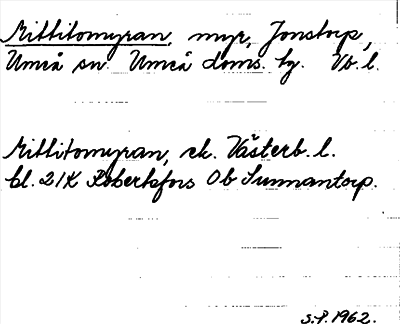 Mittitomyran, myr, Jonstorp,
Umeå sn. Umeå doms. tg. Vb. l.
Mittitomyran, ek. Västerb. l.
bl. 21K Robertsfors Ob Sunnantorp.
S.P. 1962.